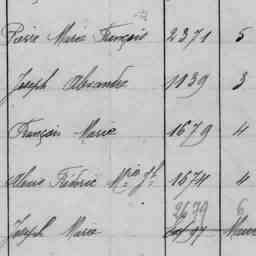 Pierre Marie François 2371 5
Joseph Alexandre 1139 3
François Marie 1679 4
Frédéric 1674 4
2679 6
Joseph Marie